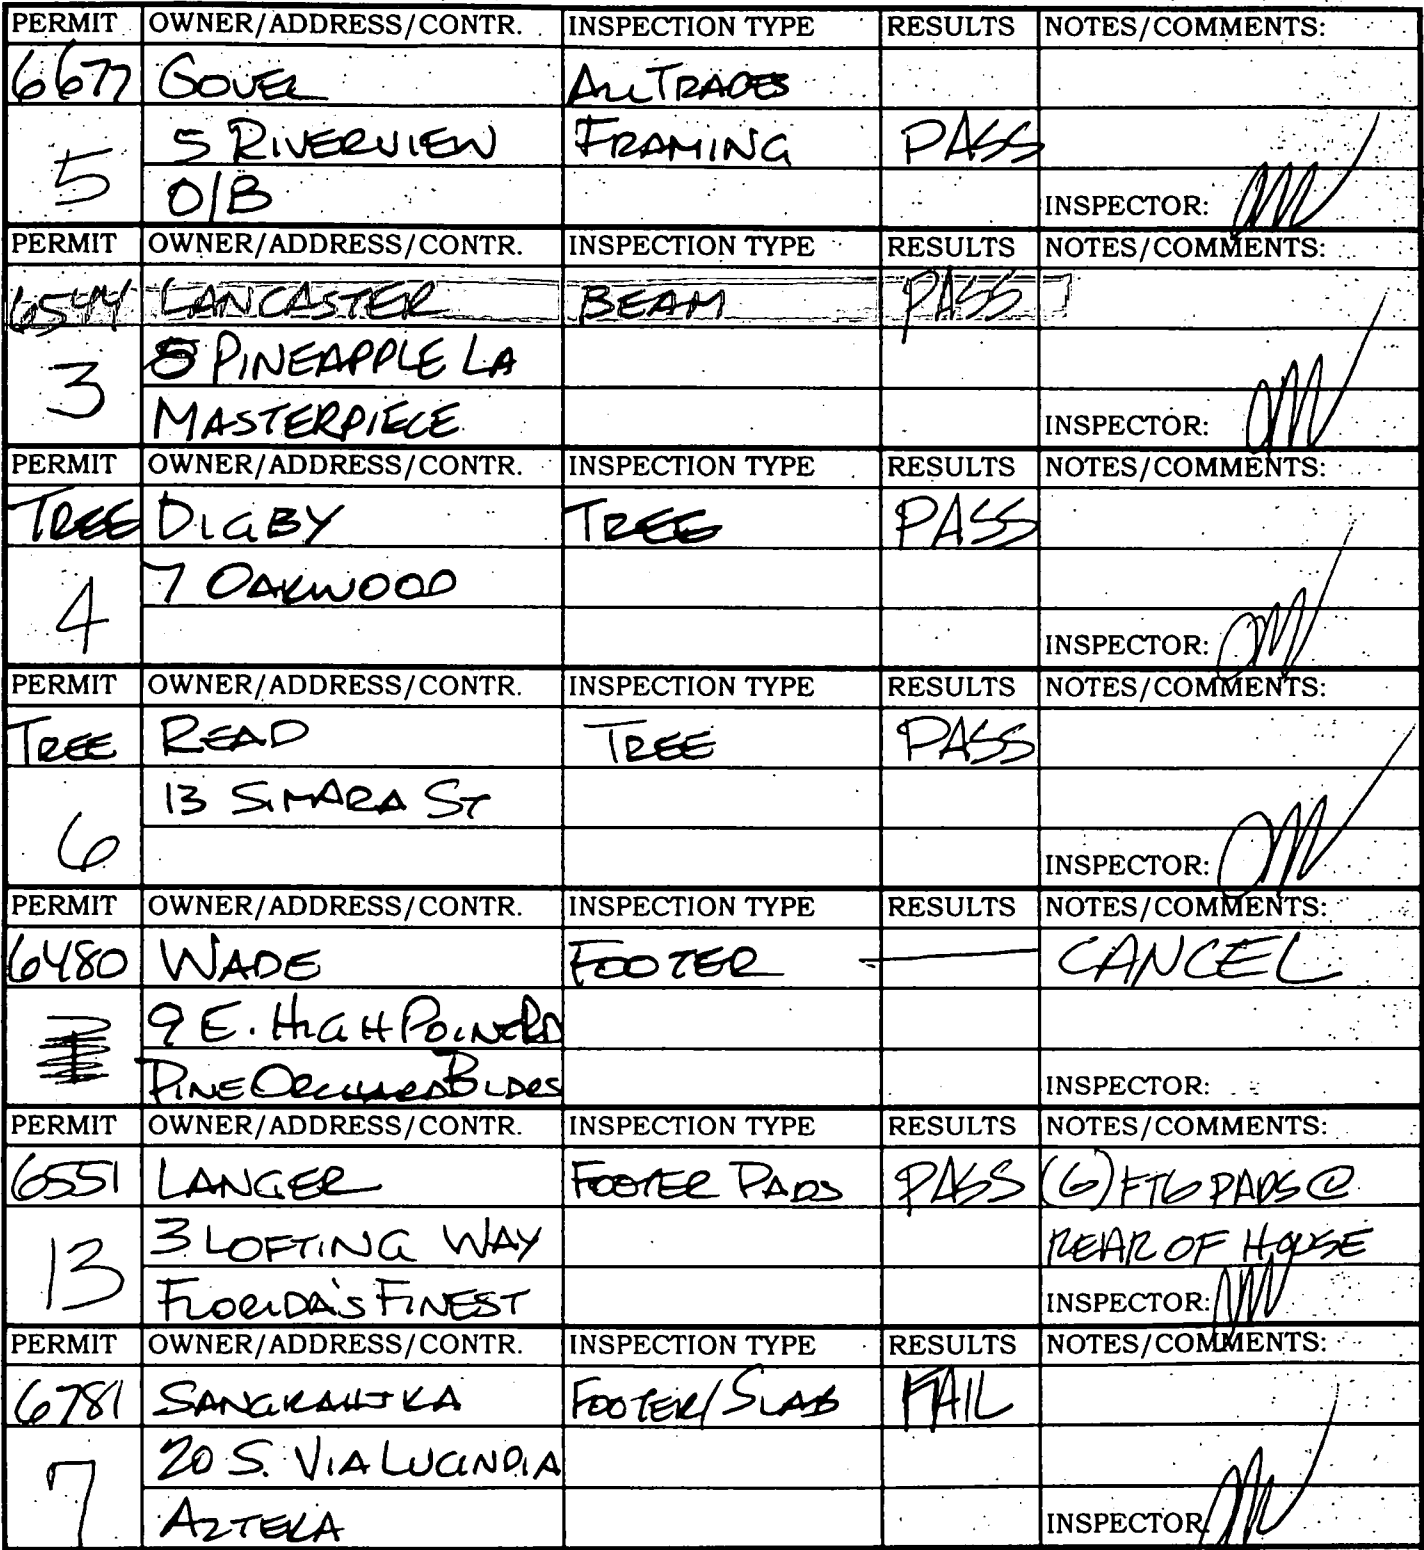 PERMIT OWNER/ADDRESS/CONTR. INSPECTION TYPE RESULTS NOTES/COMMENTS:
6677 GOVEL ALL TRADES
5 RIVERVIEW FRAMING PASS
5
O/B INSPECTOR:
PERMIT OWNER/ADDRESS/CONTR. INSPECTION TYPE RESULTS NOTES/COMMENTS:
6544 LANCASTER BEAM PASS
8 PINEAPPLE LA
3
MASTERPIECE INSPECTOR:
PERMIT OWNER/ADDRESS/CONTR. INSPECTION TYPE RESULTS NOTES/COMMENTS:
TREE DIGBY TREE PASS
7 OAKWOOD
4
INSPECTOR:
PERMIT OWNER/ADDRESS/CONTR. INSPECTION TYPE RESULTS NOTES/COMMENTS:
TREE READ TREE PASS
13 SIMARA ST
6
INSPECTOR:
PERMIT OWNER/ADDRESS/CONTR. INSPECTION TYPE RESULTS NOTES/COMMENTS:
6480 WADE FOOTER — CANCEL
9 E. HIGH POINT RD
PINE ORCHARD BLDRS INSPECTOR:
PERMIT OWNER/ADDRESS/CONTR. INSPECTION TYPE RESULTS NOTES/COMMENTS:
6551 LANGER FOOTER PADS PASS (6) FTG PADS @
3 LOFTING WAY REAR OF HOUSE
13
FLORIDA'S FINEST INSPECTOR:
PERMIT OWNER/ADDRESS/CONTR. INSPECTION TYPE RESULTS NOTES/COMMENTS:
6781 FOOTER/SLAB FAIL
20 S. VIA LUCINDIA
7
AZTEKA INSPECTOR: